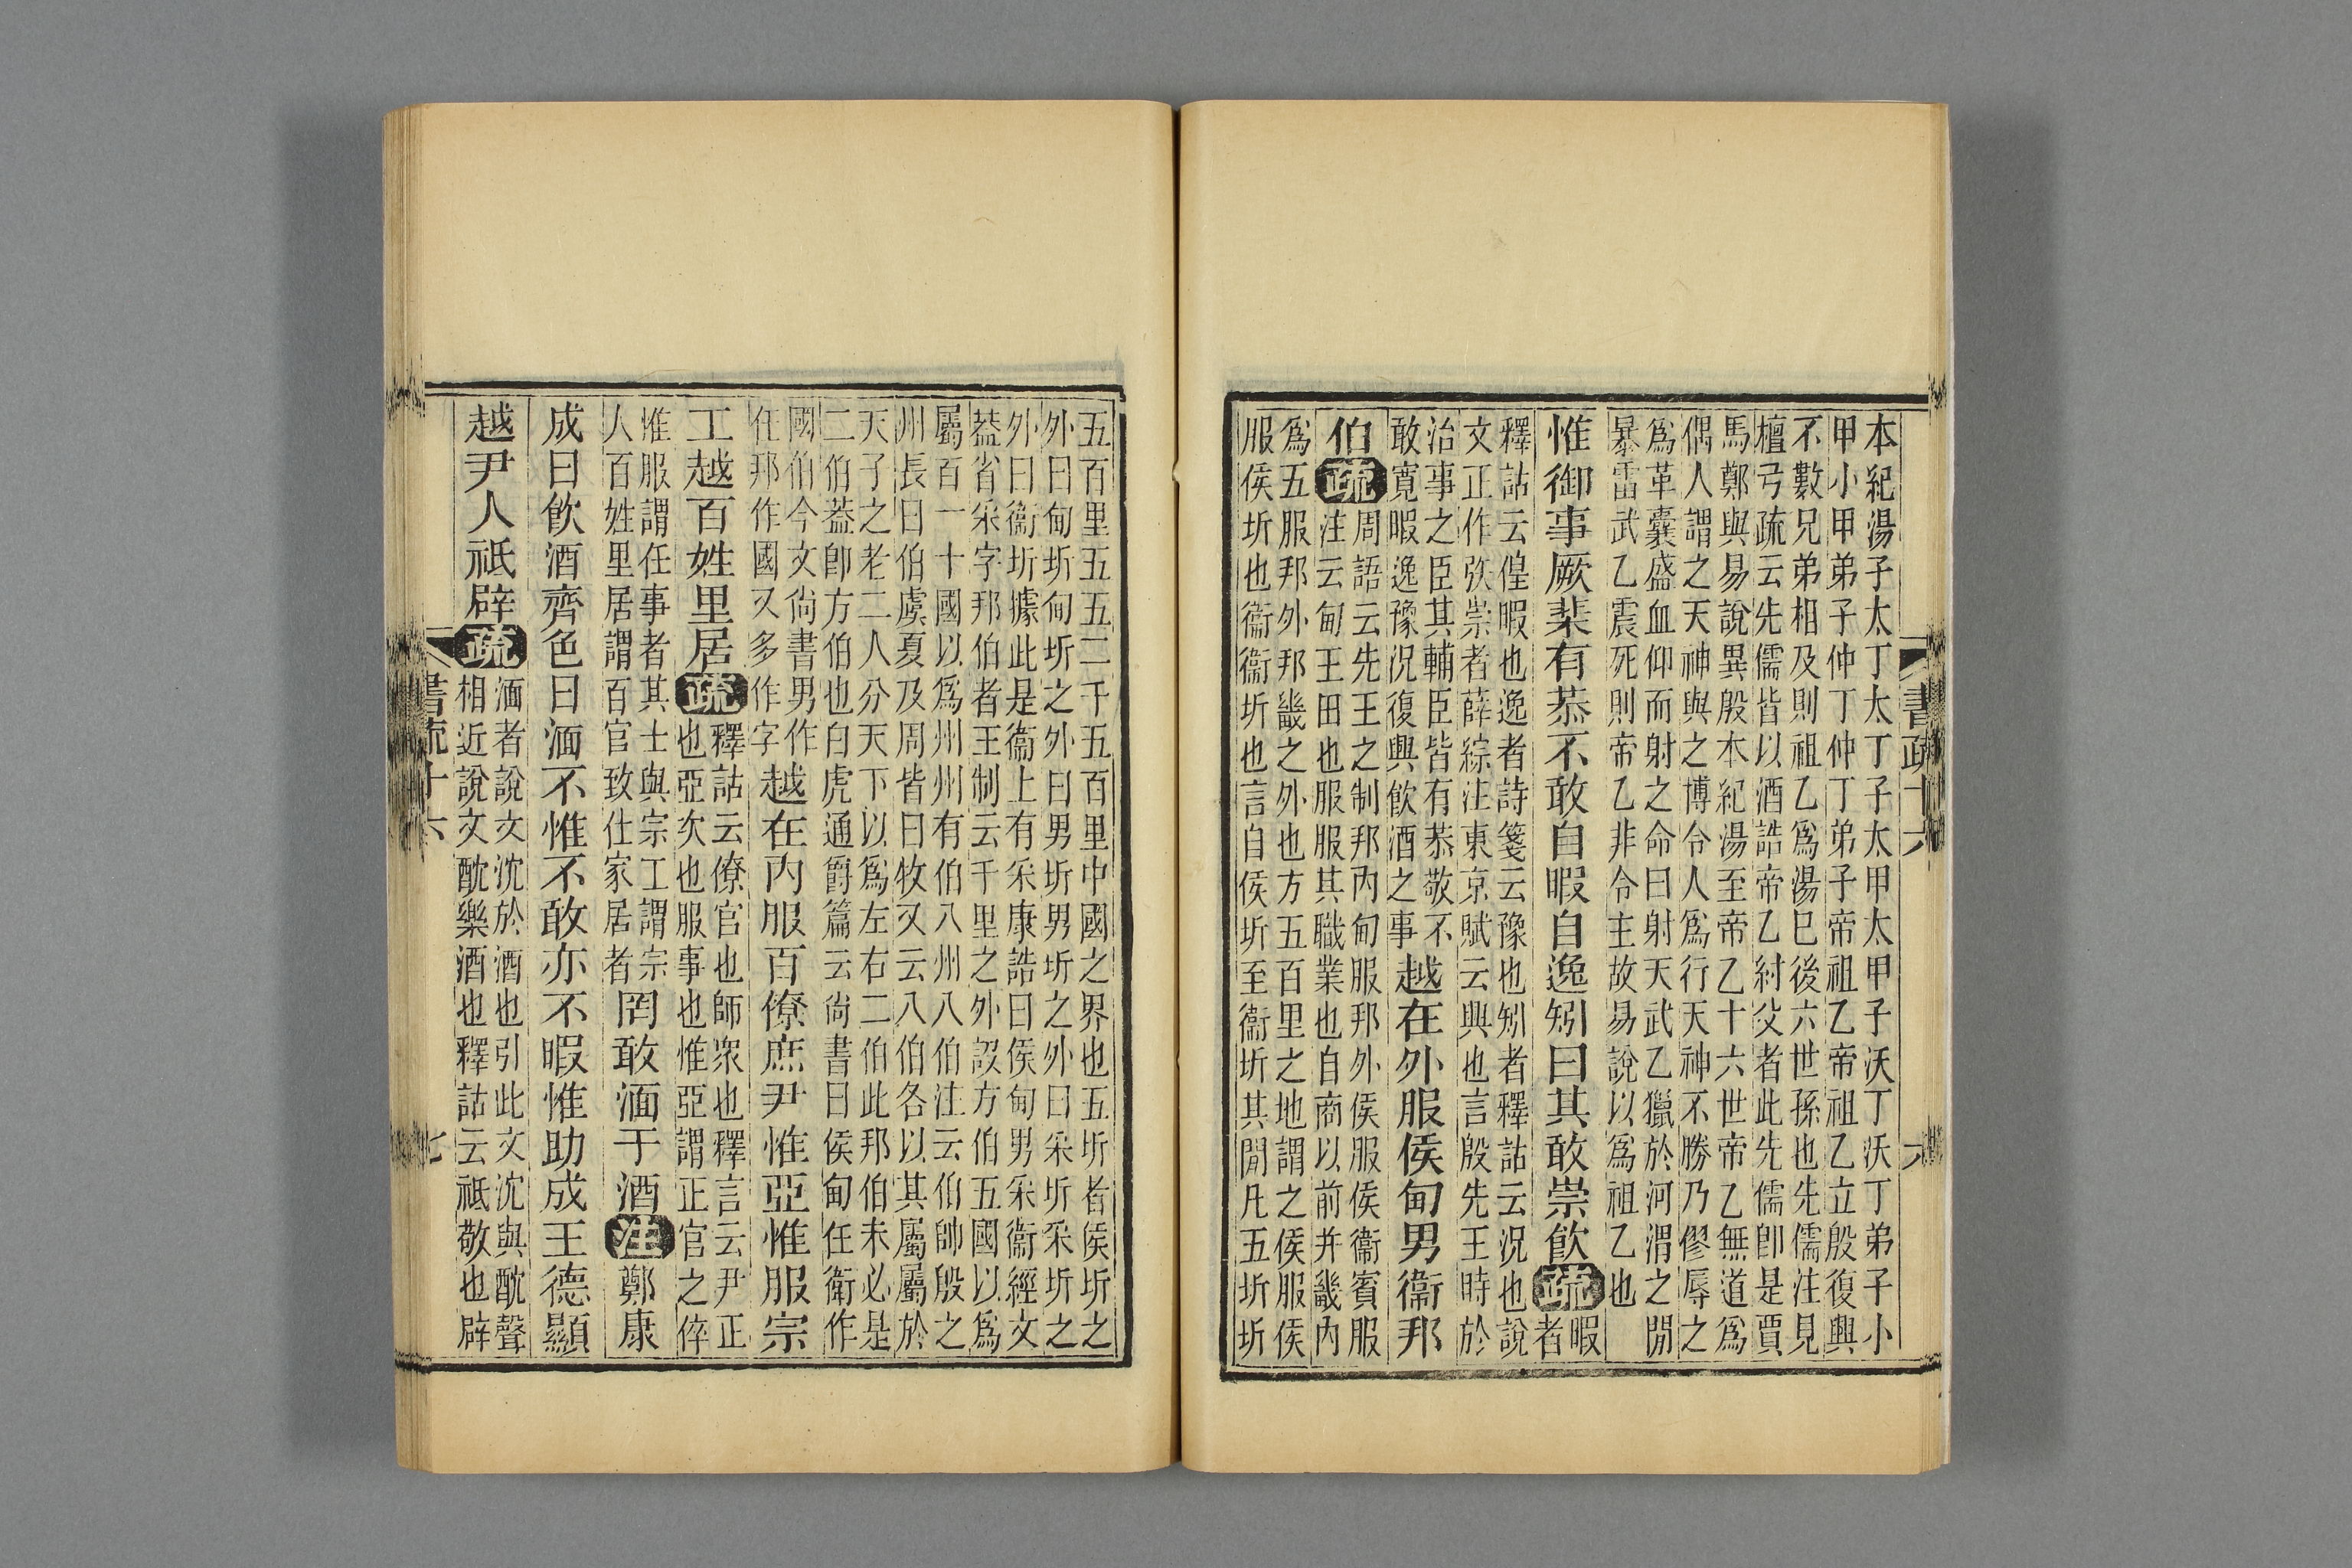 本紀湯子太丁太丁子太甲太甲子沃丁沃丁弟子小
甲小甲弟子仲丁仲丁弟子帝祖乙帝祖乙立殷復興
不數兄弟相及則祖乙爲湯巳後六世孫也先儒注見
檀弓疏云先儒皆以酒誥帝乙紂父者此先儒卽是賈
馬鄭與易說異殷本紀湯至帝乙十六世帝乙無道爲
偶人謂之天神與之博令人爲行天神不勝乃僇辱之
爲革囊盛血仰而射之命曰射天武乙獵於河渭之閒
暴雷武乙震死則帝乙非令主故易說以爲祖乙也
惟御事厥棐有恭不敢自暇自逸矧曰其敢崇飲疏
暇
者
釋詁云偟暇也逸者詩箋云豫也矧者釋詁云況也說
文正作弞崇者薛綜注東京賦云興也言殷先王時於
治事之臣其輔臣皆有恭敬不
敢寬暇逸豫況復興飲酒之事
越在外服侯甸男衞邦
伯疏
周語云先王之制邦內甸服邦外侯服侯衞賓服
注云甸王田也服服其職業也自商以前并畿內
爲五服邦外邦畿之外也方五百里之地謂之侯服侯
服侯圻也衞衞圻也言自侯圻至衞圻其閒凡五圻圻
書疏十六
六
五百里五五二千五百里中國之界也五圻者侯圻之
外曰甸圻甸圻之外曰男圻男圻之外曰采圻采圻之
外曰衞圻據此是衞上有采康誥曰侯甸男采衞經文
葢省采字邦伯者王制云千里之外設方伯五國以爲
屬百一十國以爲州州有伯八州八伯注云伯帥殷之
州長曰伯虞夏及周皆曰牧又云八伯各以其屬屬於
天子之老二人分天下以爲左右二伯此邦伯未必是
二伯葢卽方伯也白虎通爵篇云尙書曰侯甸任衞作
國伯今文尙書男作
任邦作國又多作字
越在內服百僚庶尹惟亞惟服宗
工越百姓里居疏
釋詁云僚官也師衆也釋言云尹正
也亞次也服事也惟亞謂正官之倅
惟服謂任事者其士與宗工謂宗
人百姓里居謂百官致仕家居者
罔敢湎于酒注鄭康
成曰飲酒齊色曰湎不惟不敢亦不暇惟助成王德顯
越尹人祗辟疏
湎者說文沈於酒也引此文沈與酖聲
相近說文酖樂酒也釋詁云祗敬也辟
書疏十六
七